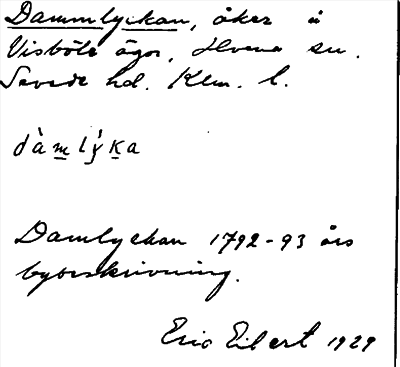 Dammlyckan, åker å
Visböle ägor, Hvena sn.
Sevede hd. Klm. l.
dàmlýka
Damlyckan 1792-93 års
bybeskrivning.
Eric Eilert 1929